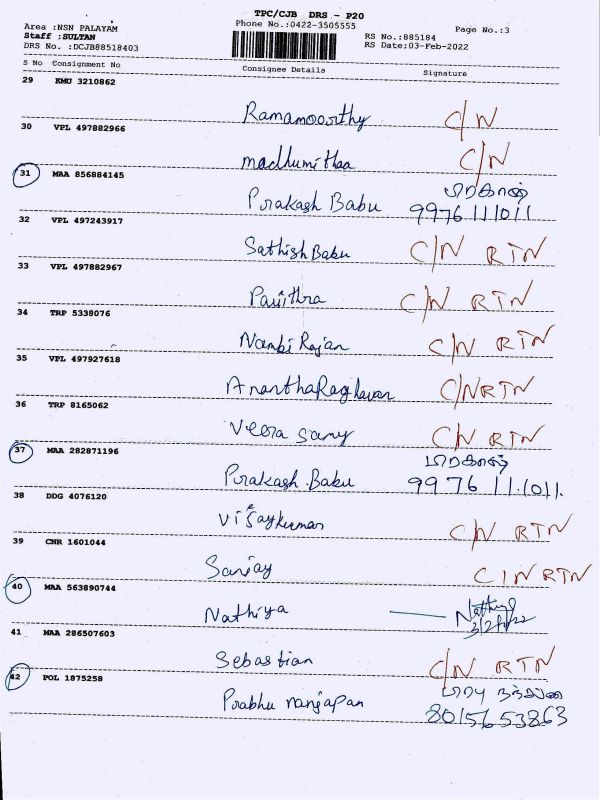 TPC/CJB DRS - P20
Area :NSN PALAYAM Phone No.:0422-3505555 Page No.:3
Staff :SULTAN RS No.:885184
DRS No. :DCJB88518403 RS Date:03-Feb-2022
S No Consignment No Consignee Details Signature
29 KMU 3210862
Ramamoorthy C/N
30 VPL 497882966
madhumithaa C/N
31 MAA 856884145
பிரகாஷ்
Prakash Babu 9976111011
32 VPL 497243917
Sathish Babu C/N RTN
33 VPL 497882967
Pavithra C/N RTN
34 TRP 5338076
Nambi Rajan C/N RTN
35 VPL 497927618
AnanthaRaghavan C/N RTN
36 TRP 8165062
Veera Samy C/N RTN
37 MAA 282871196
பிரகாஷ்
Prakash Babu 9976 111011.
38 DDG 4076120
Vijaykumar C/N RTN
39 CNR 1601044
Sanjay C/N RTN
40 MAA 563890744
Nathiya
3/2/22
41 MAA 286507603
Sebastian C/N RTN
42 POL 1875258
பிரபு
Prabhu nanjapan 8015653863